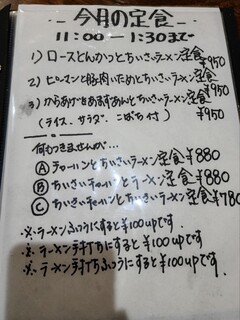 今月の定食
11:00 — 1:30まで
1) ロースとんかつとちいさいラーメン定食 ¥950
2) ピーマンと豚肉いためとちいさいラーメン定食 ¥950
3) からあげをあますあんとちいさいラーメン定食 ¥950
(ライス、サラダ、こばち付)
何もつきませんが...
Ⓐ チャーハンとちいさいラーメン定食 ¥880
Ⓑ ちいさいチャーハンとラーメン定食 ¥880
Ⓒ ちいさいチャーハンとちいさいラーメン定食 ¥780
※ ラーメンふつうにすると¥100upです
※ ラーメン
にすると¥100upです
※ ラーメン
ふつうにすると¥100upです。